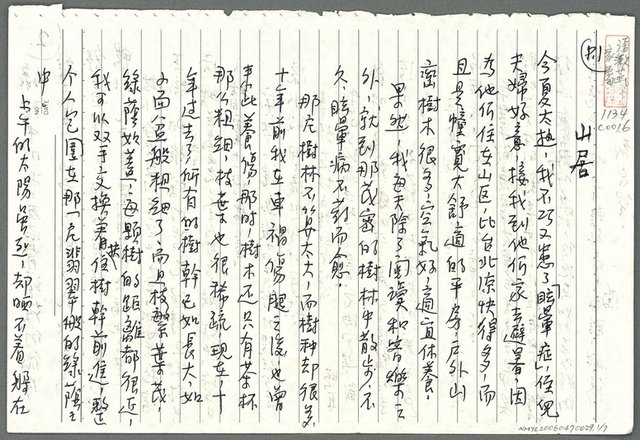 P.1
山居
今夏太热，我不巧又患了眩暈症，侄兒
夫婦好意，接我到他們家去避暑，因
為他們住在山区，比台北凉快得多，而
且是幢寬大舒適的平房，戶外山
密樹木很多，空氣好，適宜休養。
果然，我每天除了阅讀和音樂之
外，就到那茂密的樹林中散步，不
久，眩暈病不葯而愈。
那片樹林不算太大，而樹种却很多
十年前我在車禍傷腿之後，也曾
來此養傷，那时，樹木还只有茶杯
那么粗細，枝葉也很稀疏，現在，十
年过去了，所有的樹幹已如長大、如
面盆般粗细了，而且枝繁葉茂，
綠蔭如蓋，每顆樹的距離都很近，
我可以双手交換着扶住樹幹前進，整
个人包围在那一片翡翠般的綠蔭之
中
上午的太陽虽烈，却晒不着躲在
1134
C0016
NMTL20060470029. 1/7